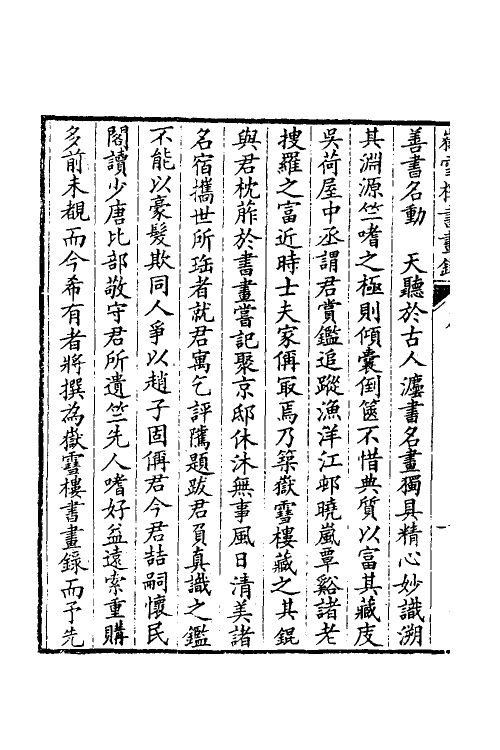 嶽雪樓書畫錄
善書名動　天聽於古人灋書名畫獨具精心妙識溯
其淵源竺嗜之極則傾囊倒篋不惜典質以富其藏庋
吳荷屋中丞謂君賞鑑追蹤漁洋江邨曉嵐覃谿諸老
搜羅之富近時士夫家偁冣焉乃築嶽雪樓藏之其錕
與君枕葄於書畫嘗記聚京邸休沐無事風日清美諸
名宿攜世所珤者就君寓乞評隲題跋君負真識之鑑
不能以豪髮欺同人爭以趙子固偁君今君喆嗣懷民
閣讀少唐比部敬守君所遺竺先人嗜好益遠索重購
多前未覩而今希有者將撰為嶽雪樓書畫錄而予先